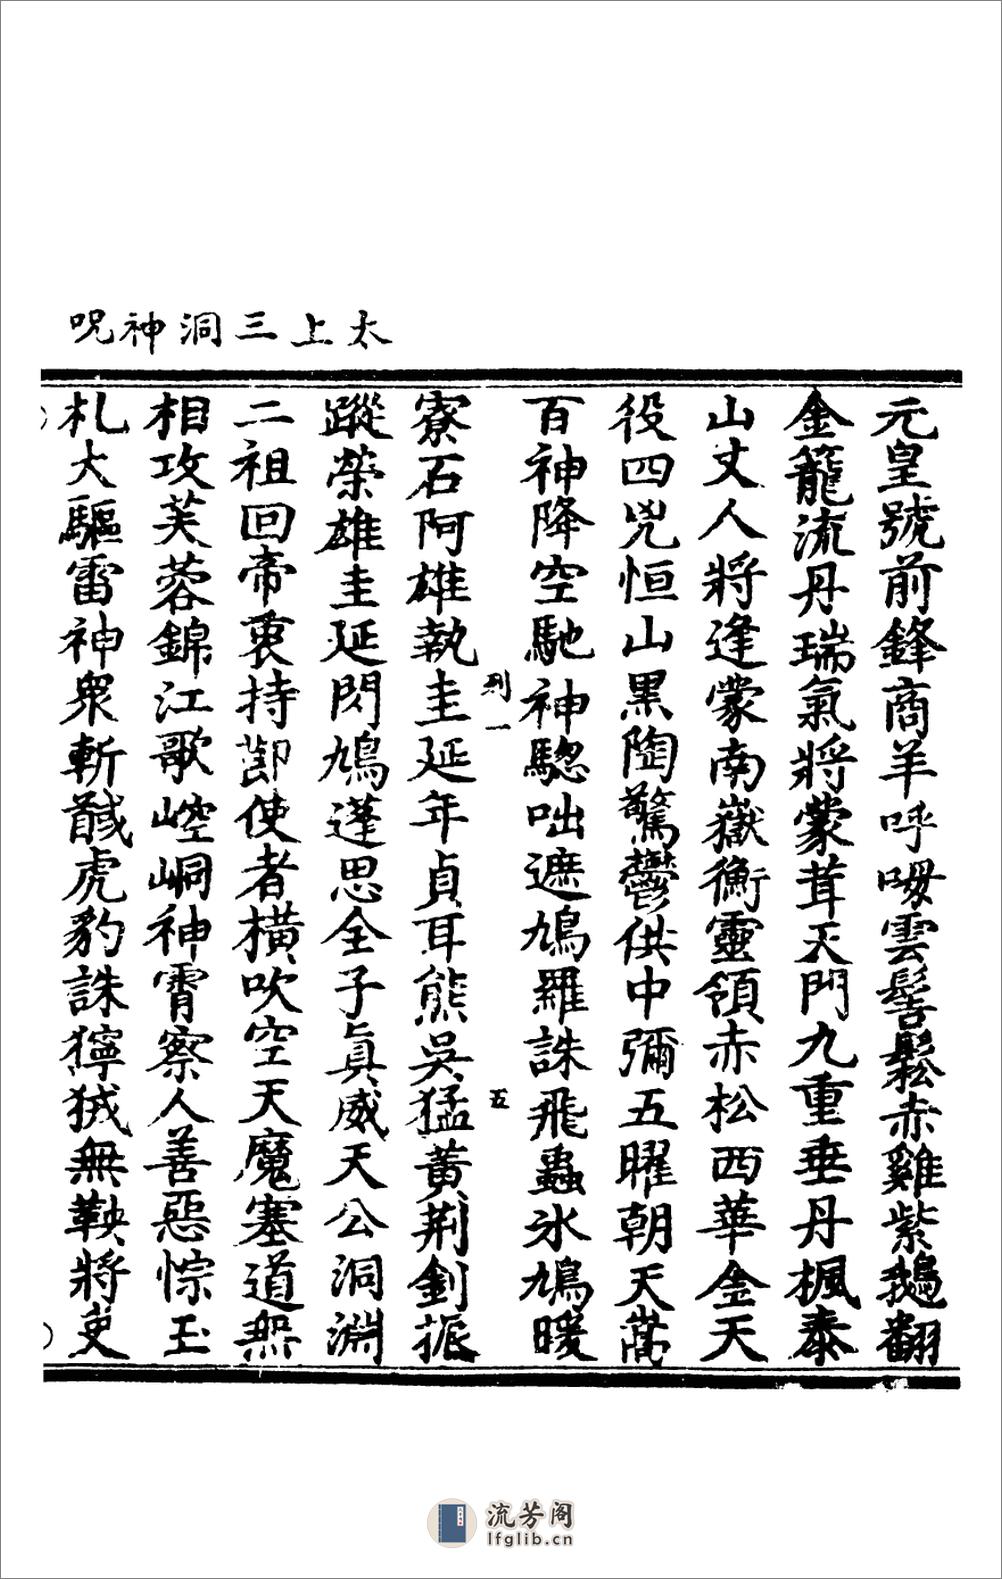 太上三洞神呪
元皇號前鋒商羊呼呣雲髻鬆赤雞紫鵝翻
金籠流丹瑞氣將蒙茸天門九重垂丹楓泰
山丈人將逢蒙南嶽衡靈領赤松西華金天
役四兇恒山黑陶驚鬱供中彌五曜朝天嵩
百神降空馳神驄咄遮鳩羅誅飛蟲氷鳩暖
列一
五
寮石阿雄執圭延年貞耳熊吳猛黃荆釗振
蹤榮雄圭延閃鳩蓬思全子眞威天公洞淵
二祖回帝衷持節使者橫吹空天魔塞道無
相攻芙蓉錦江歌崆峒神霄察人善惡悰玉
札大驅雷神衆斬馘虎豹誅獰狨無鞅將吏
流芳阁
lfglib.cn